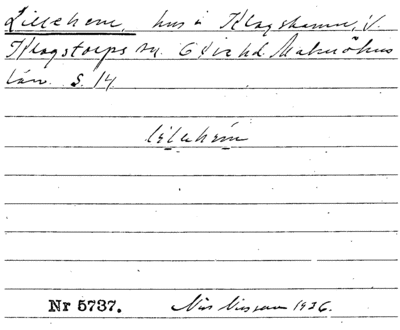 Lillehem, hus i Klagshamn, V.
Klagstorps sn. Oxie hd. Malmöhus
län. S. 14
lilehém
Nr 5737. Nils Nilsson 1936.